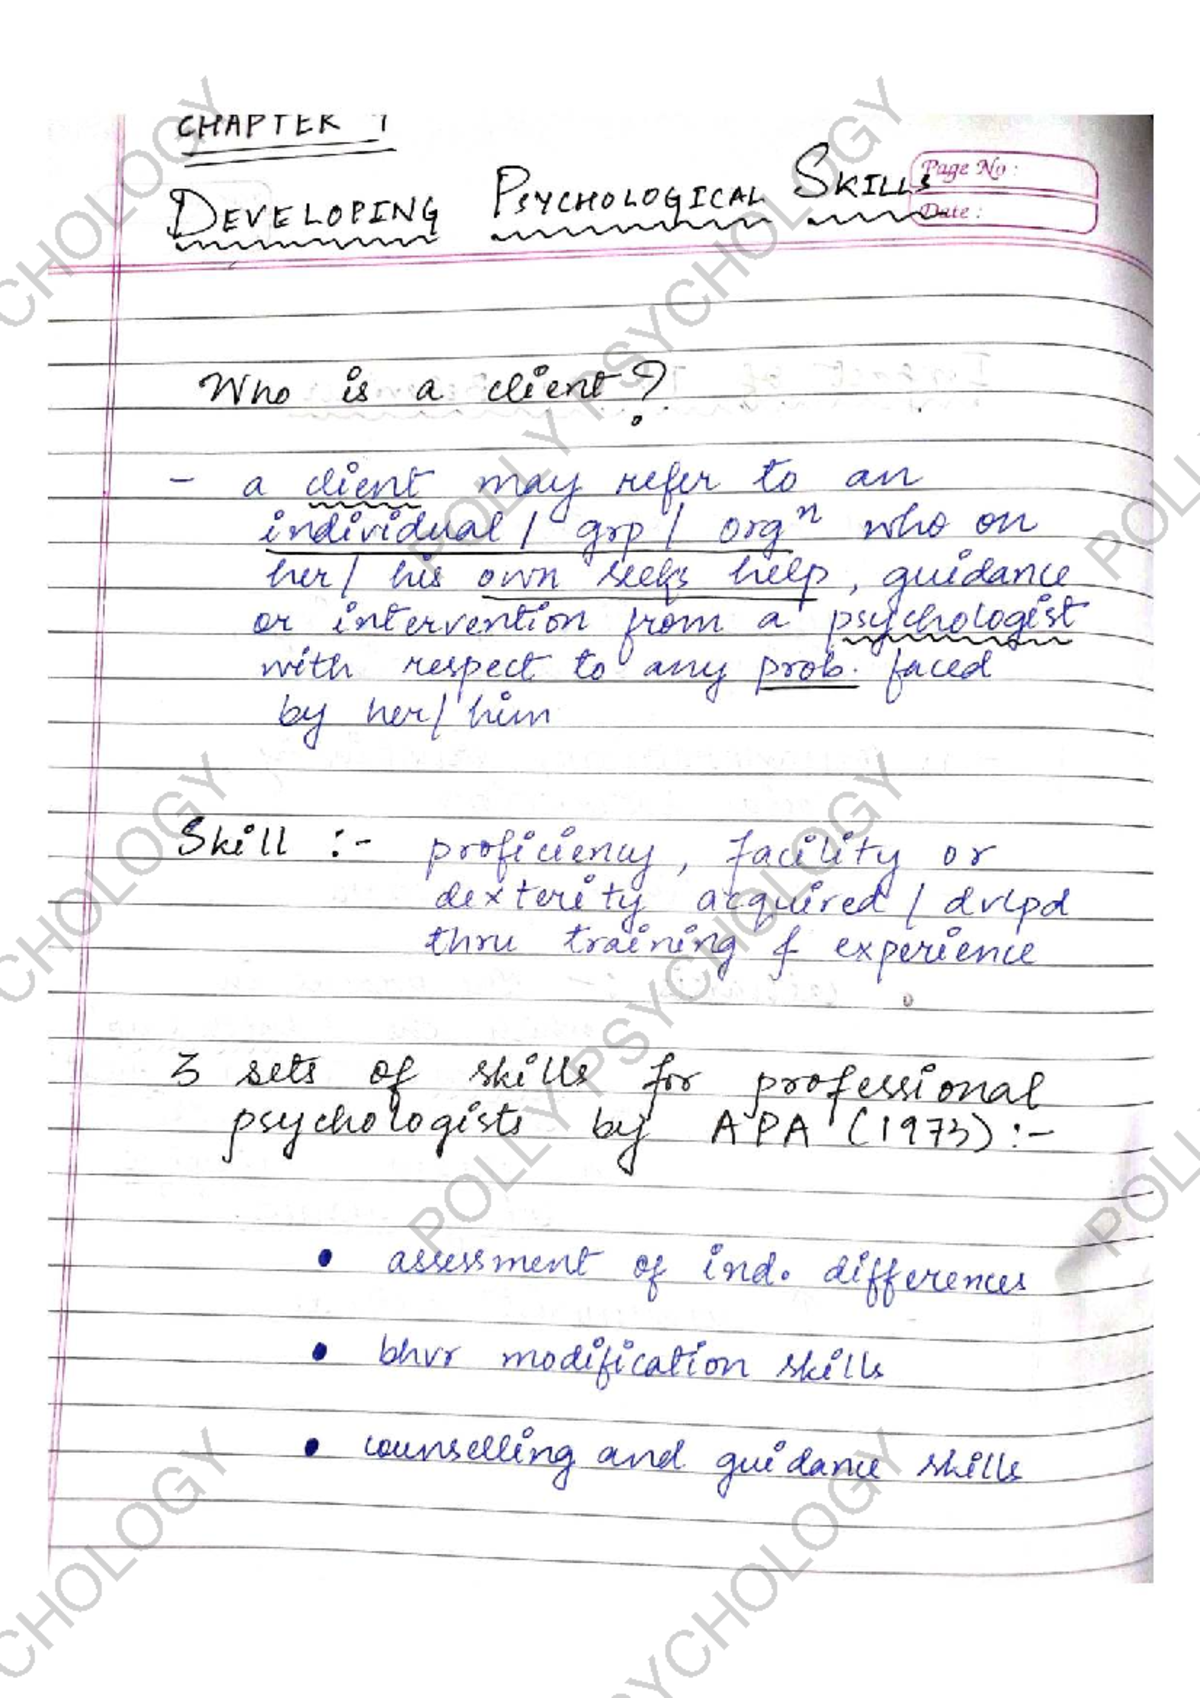 CHAPTER 1
DEVELOPING PSYCHOLOGICAL SKILLS
Page No :
Date :
Who is a client?
- a client may refer to an
individual / grp / orgⁿ who on
her / his own seeks help, guidance
or intervention from a psychologist
with respect to any prob. faced
by her / him
Skill :- proficiency, facility or
dexterity acquired / dvlpd
thru training & experience
3 sets of skills for professional
psychologists by APA (1973) :-
• assessment of ind. differences
• bhvr modification skills
• counselling and guidance skills
POLLY PSYCHOLOGY